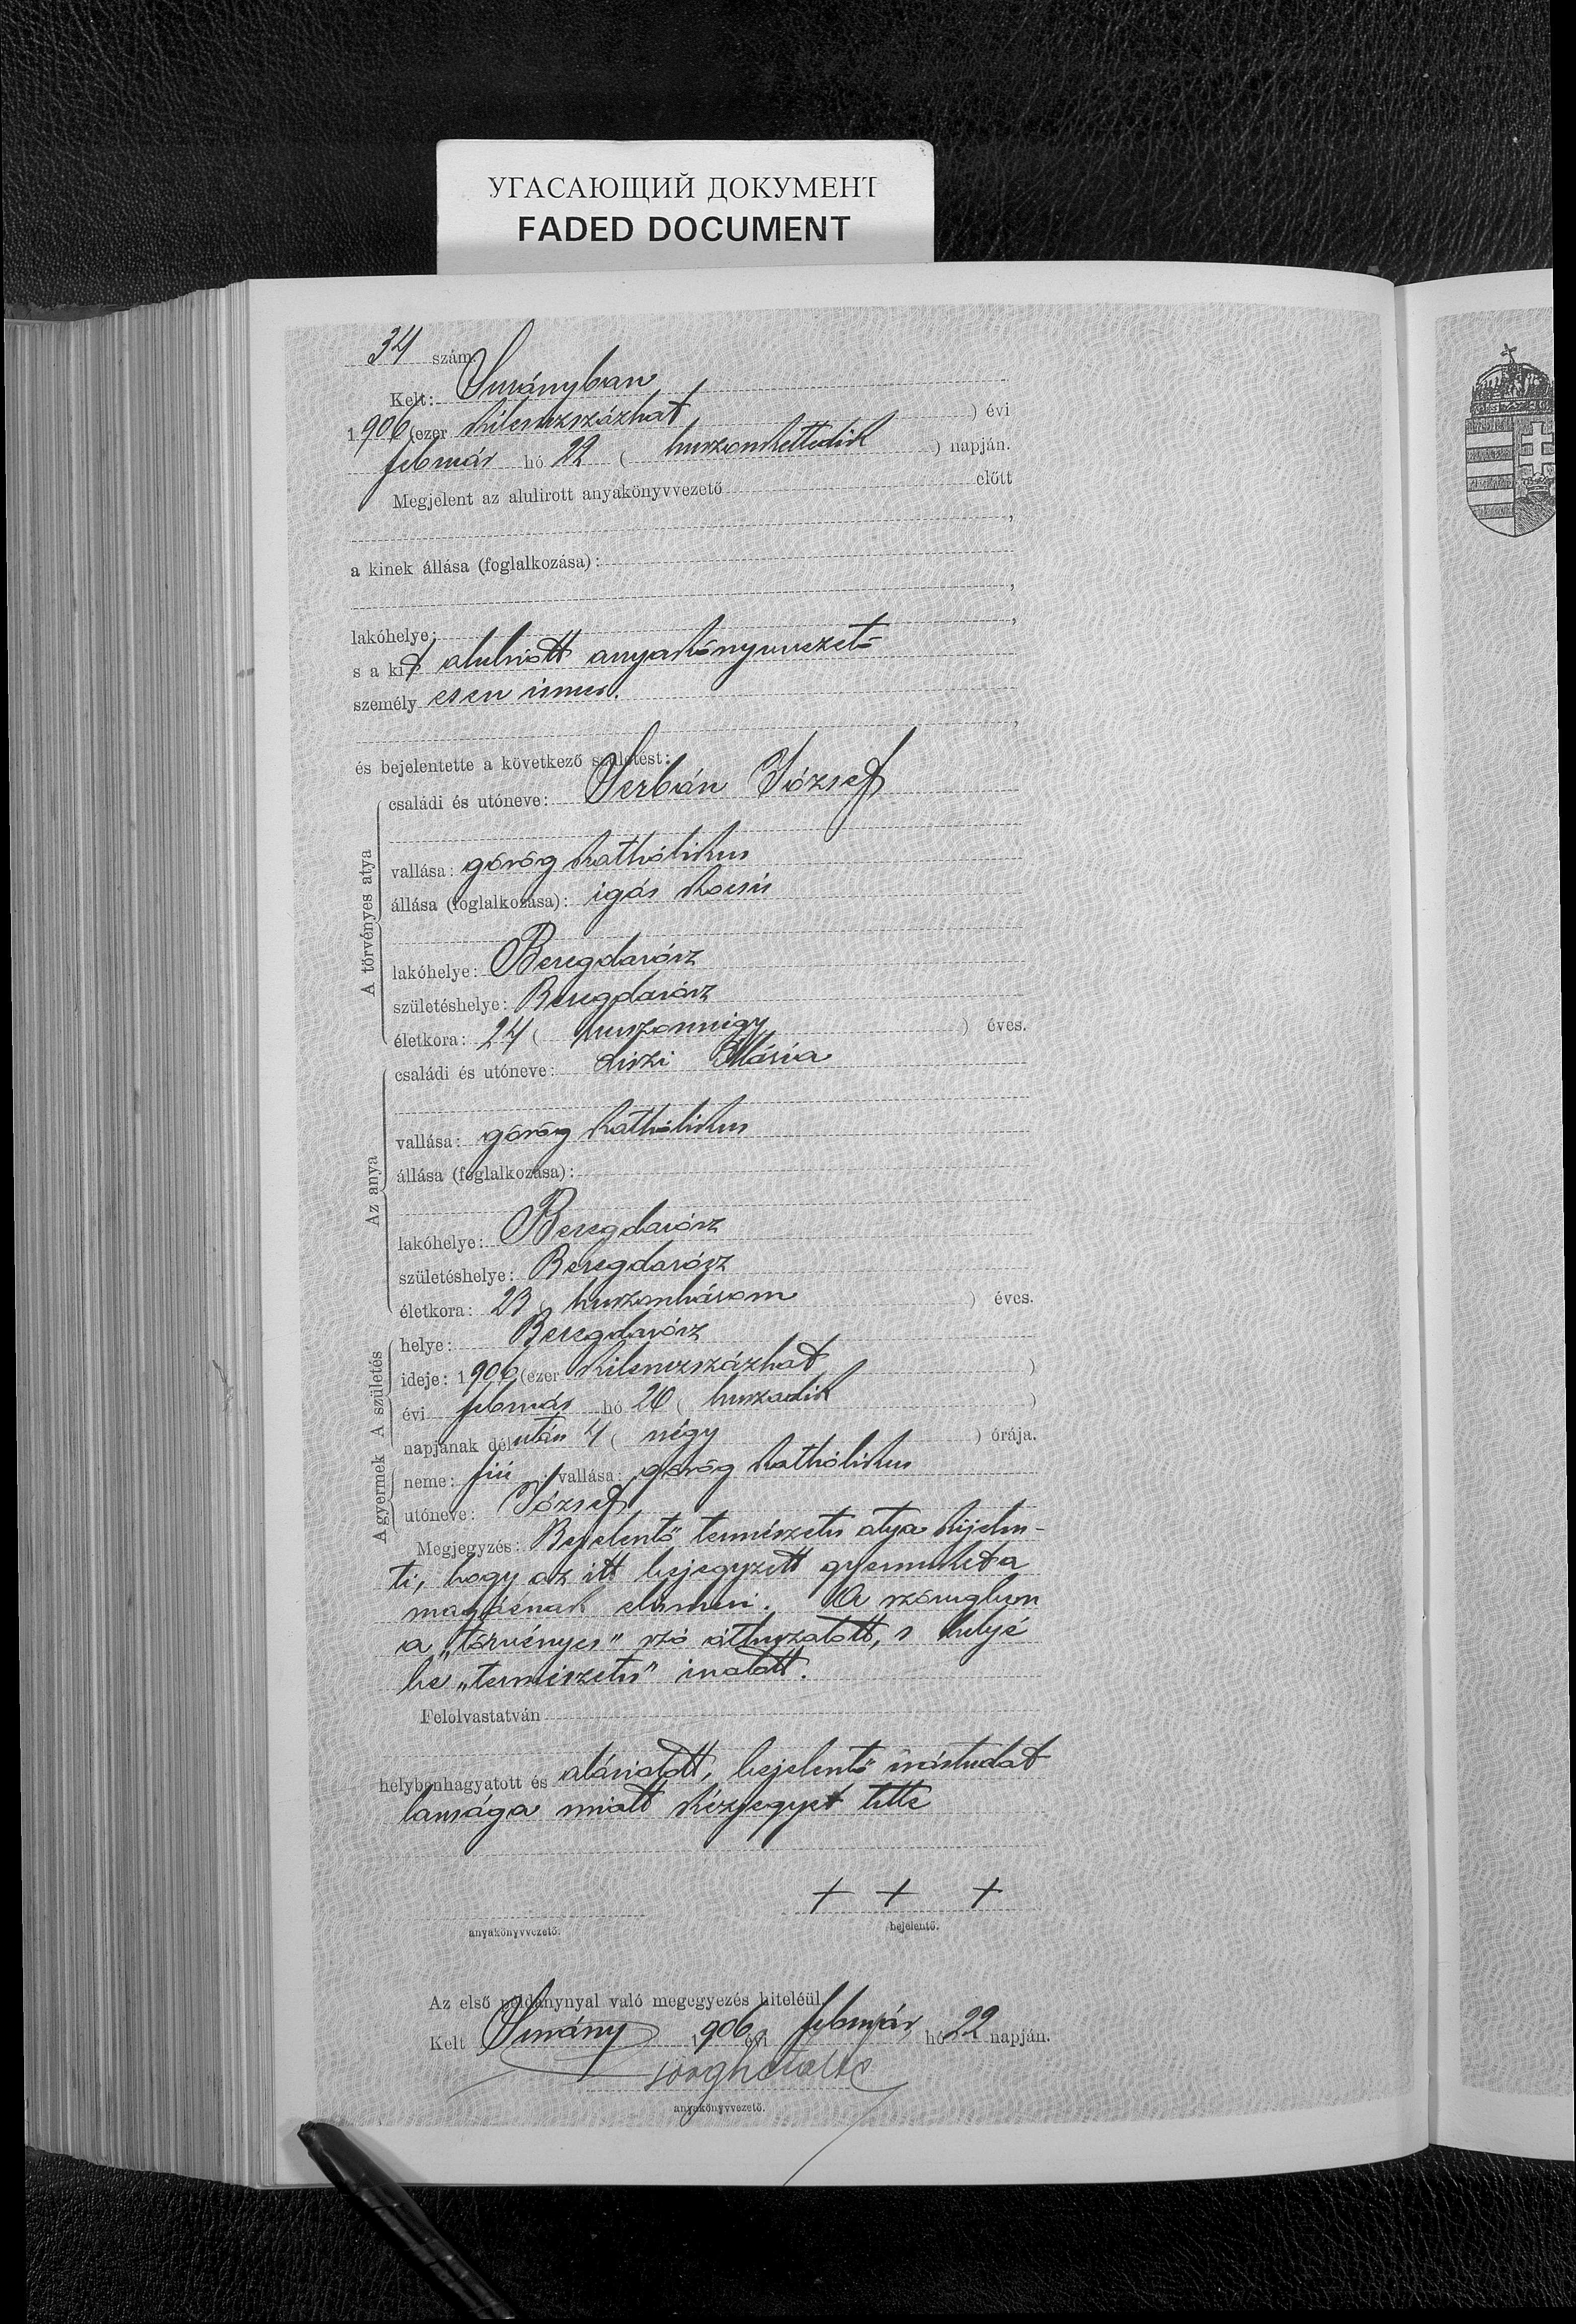 УГАСАЮЩИЙ ДОКУМЕНТ
FADED DOCUMENT
34 szám.
Kelt: Surányban
1906 (ezer kilenczszázhat ) évi
február hó 22 ( huszonkettedik ) napján.
Megjelent az alulirott anyakönyvvezető előtt
a kinek állása (foglalkozása):
lakóhelye:
s a kit alulirott anyakönyvvezető
személyesen ismer.
és bejelentette a következő születést:
A törvényes atya
családi és utóneve: Serbán József
vallása: görög katholikus
állása (foglalkozása): igás kocsis
lakóhelye: Beregdarócz
születéshelye: Beregdarócz
életkora: 24 ( huszonnégy ) éves.
Az anya
családi és utóneve: Liszi Mária
vallása: görög katholikus
állása (foglalkozása):
lakóhelye: Beregdarócz
születéshelye: Beregdarócz
életkora: 23 ( huszonhárom ) éves.
A születés
helye: Beregdarócz
ideje: 1906 (ezer kilenczszázhat )
évi február hó 20 ( huszadik )
napjának délután 4 ( négy ) órája.
A gyermek
neme: fiú ; vallása: görög katholikus
utóneve: József
Megjegyzés: Bejelentő természetes atya kijelen-
ti, hogy az itt bejegyzett gyermeket a
magáénak elismeri. A szövegben
a „törvényes" szó áthuzatott, s helyé
be „természetes" iratott.
Felolvastatván
helybenhagyatott és aláiratott, bejelentő irástudat
lansága miatt kézjegyet tette
+ + +
anyakönyvvezető. bejelentő.
Az első példánynyal való megegyezés hiteléül.
Kelt Surány 1906 évi február hó 22 napján.
anyakönyvvezető.